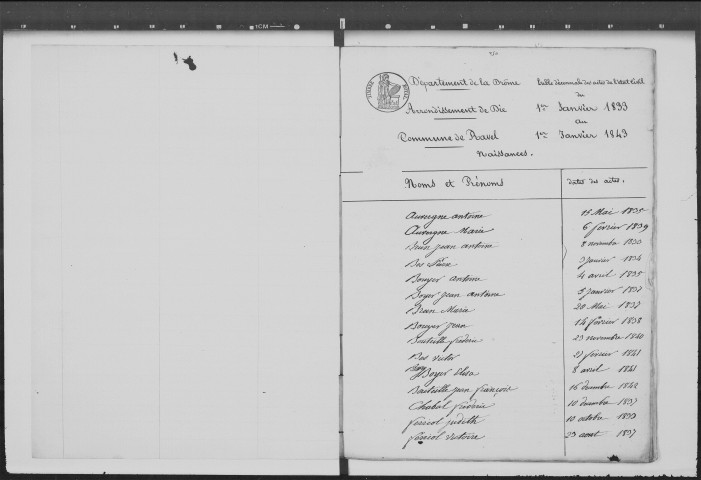 Département de la Drôme
Arrondissement de Die
Commune de Ravel
Table décennale des actes de l'état Civil
du
1er Janvier 1833
au
1er Janvier 1843
Naissances.
Noms et Prénoms dates des actes.
Auvergne antoine 15 Mai 1835
Auvergne Marie 6 février 1839
jean antoine 8 novembre 1833
Bes 3 janvier 1834
Bouyer antoine 4 avril 1835
Boyer jean antoine 5 janvier 1837
Marie 20 Mai 1837
Bouyer jean 14 février 1838
23 novembre 1840
Bes victor 21 février 1841
Boyer Elisa 8 avril 1841
jean françois 16 décembre 1842
Chabal 10 décembre 1837
judith 10 octobre 1833
victoire 23 aout 1837